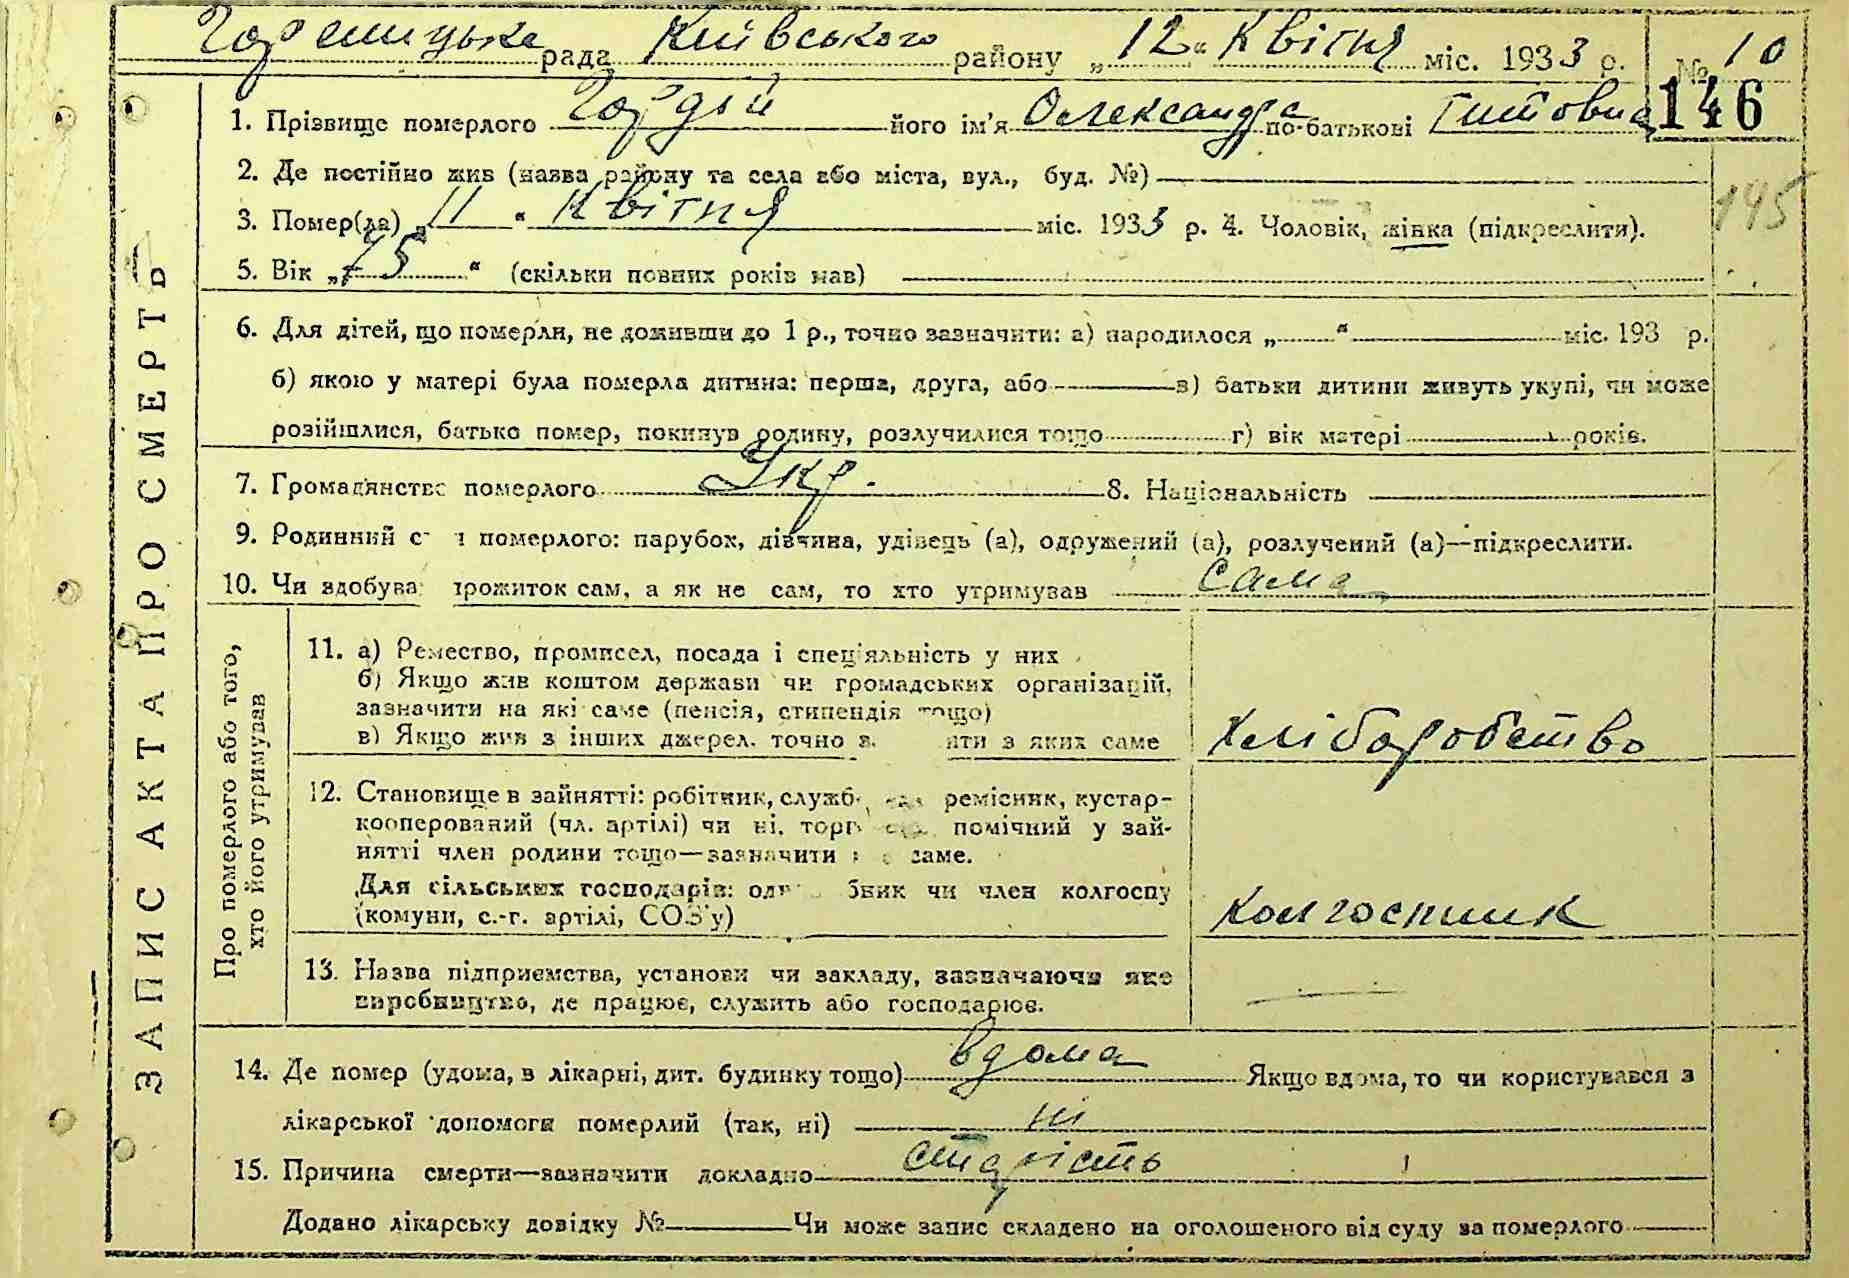 Гореницька рада Київського района „12“ Квітня міс. 1933 р. № 10
146
1. Прізвище померлого Гордій його ім'я Олександра по-батькові Титовна
2. Де постійно жив (назва району та села або міста, вул., буд. №)
195
3. Помер(ла) „11“ Квітня міс. 1933 р. 4. Чоловік, жінка (підкреслити).
5. Вік „75“ (скільки повних років мав)
6. Для дітей, що померли, не доживши до 1 р., точно зазначити: а) народилося „ “ міс. 193 р.
б) якою у матері була померла дитина: перша, друга, або в) батьки дитини живуть укупі, чи може
розійшлися, батько помер, покинув родину, розлучилися тощо г) вік матері років.
7. Громадянство померлого Укр. 8. Національність
9. Родинний с н померлого: парубок, дівчина, удівець (а), одружений (а), розлучений (а)—підкреслити.
10. Чи здобува прожиток сам, а як не сам, то хто утримував сама
ЗАПИС АКТА ПРО СМЕРТЬ
Про померлого або того,
хто його утримував
11. а) Ремество, промисел, посада і спеціяльність у них
б) Якщо жив коштом держави чи громадських організацій,
зазначити на які саме (пенсія, стипендія тощо)
в) Якщо жив з інших джерел, точно з ити з яких саме
Хліборобство
12. Становище в зайнятті: робітник, службо ремісник, кустар-
кооперований (чл. артілі) чи ні, торг помічний у зай-
нятті член родини тощо—зазначити саме.
Для сільських господарів: од бник чи член колгоспу
(комуни, с.-г. артілі, СОЗ'у)
колгоспник
13. Назва підприємства, установи чи закладу, зазначаючи яке
виробництво, де працює, служить або господарює.
14. Де помер (удома, в лікарні, дит. будинку тощо) вдома Якщо вдома, то чи користувався з
лікарської допомоги померлий (так, ні) ні
15. Причина смерти—зазначити докладно старість
Додано лікарську довідку № Чи може запис складено на оголошеного від суду за померлого